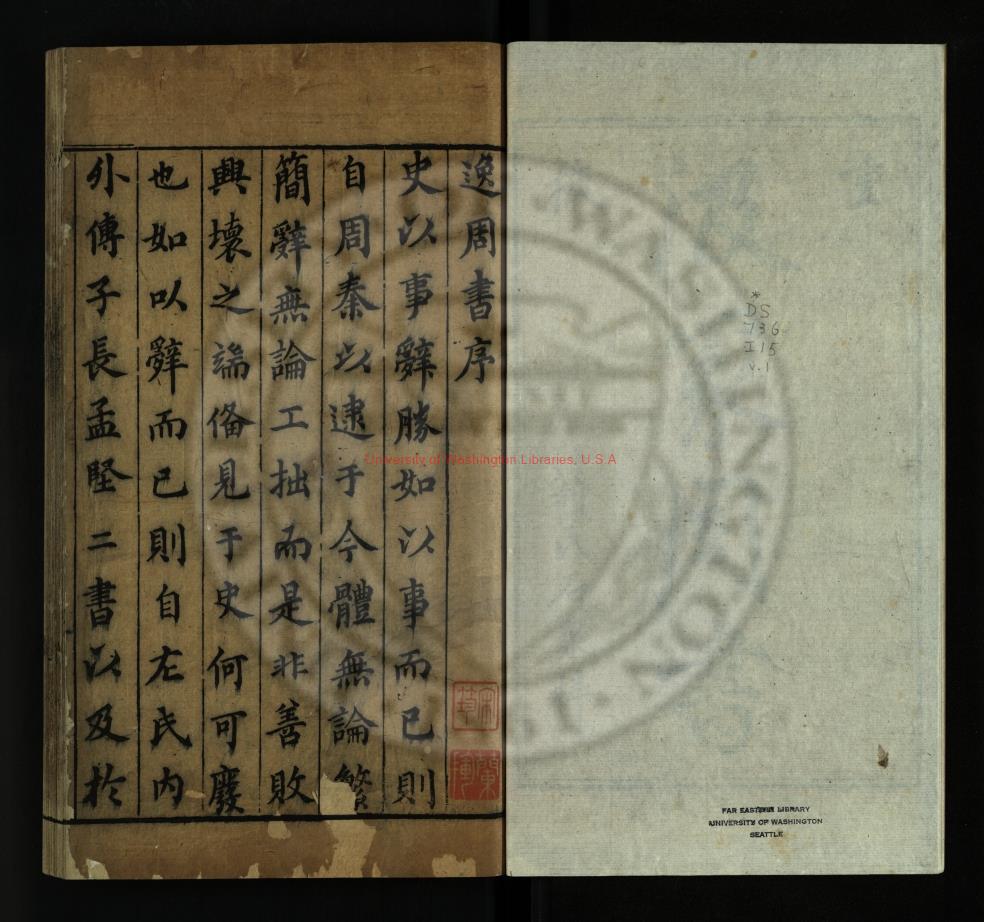 逸周書序
史以事辭勝如以事而已則
自周秦以逮于今體無論繁
簡辭無論工拙而是非善敗
興壞之端備見于史何可廢
也如以辭而已則自左氏內
外傳子長孟堅二書以及於
*
DS
736
I15
v.1
FAR EASTERN LIBRARY
UNIVERSITY OF WASHINGTON
SEATTLE
University of Washington Libraries, U.S.A
WASHINGTON